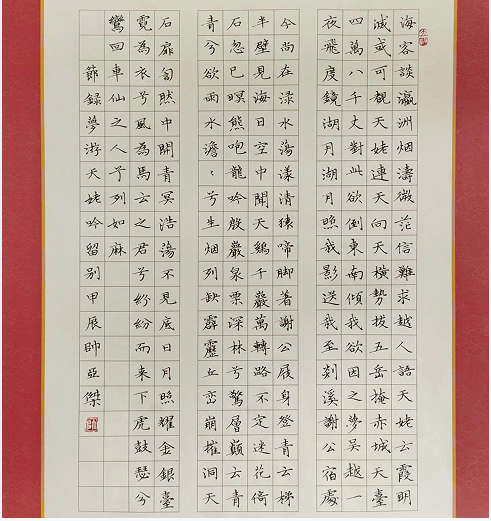 海客談瀛洲烟濤微茫信難求越人語天姥云霞明
滅或可覩天姥連天向天橫勢拔五岳掩赤城天臺
四萬八千丈對此欲倒東南傾我欲因之夢吴越一
夜飛度鏡湖月湖月照我影送我至剡溪謝公宿處
今尚在渌水蕩漾清猿啼脚著謝公屐身登青云梯
半壁見海日空中聞天鷄千巖萬轉路不定迷花倚
石忽已暝熊咆龍吟殷巖泉栗深林兮驚層巔云青
青兮欲雨水澹々兮生烟列缺霹靂丘巒崩摧洞天
石扉訇然中開青冥浩蕩不見底日月照耀金銀臺
霓為衣兮風為馬云之君兮紛紛而来下虎鼓瑟兮
鸞回車仙之人兮列如麻
節録夢游天姥吟留别甲展帥亞傑